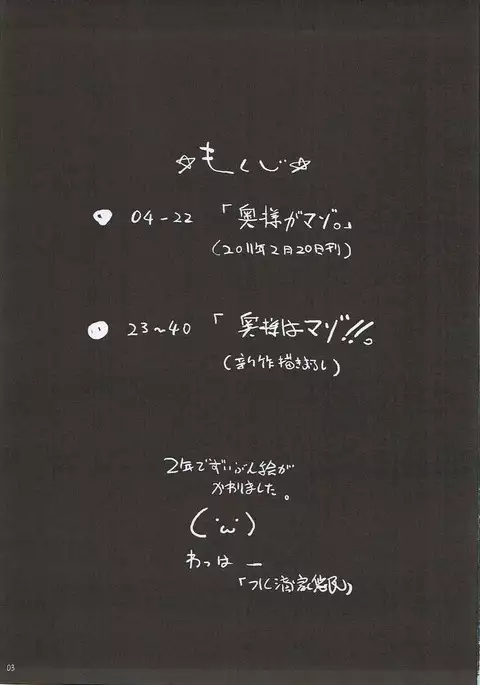 ☆もくじ☆
04-22 「奥様がマゾ。」
(2011年2月20日刊)
23~40 「奥様はマゾ!!。
(新作描きおろし)
2年でずいぶん絵が
かわりました。
(´ω`)
わっはー
03